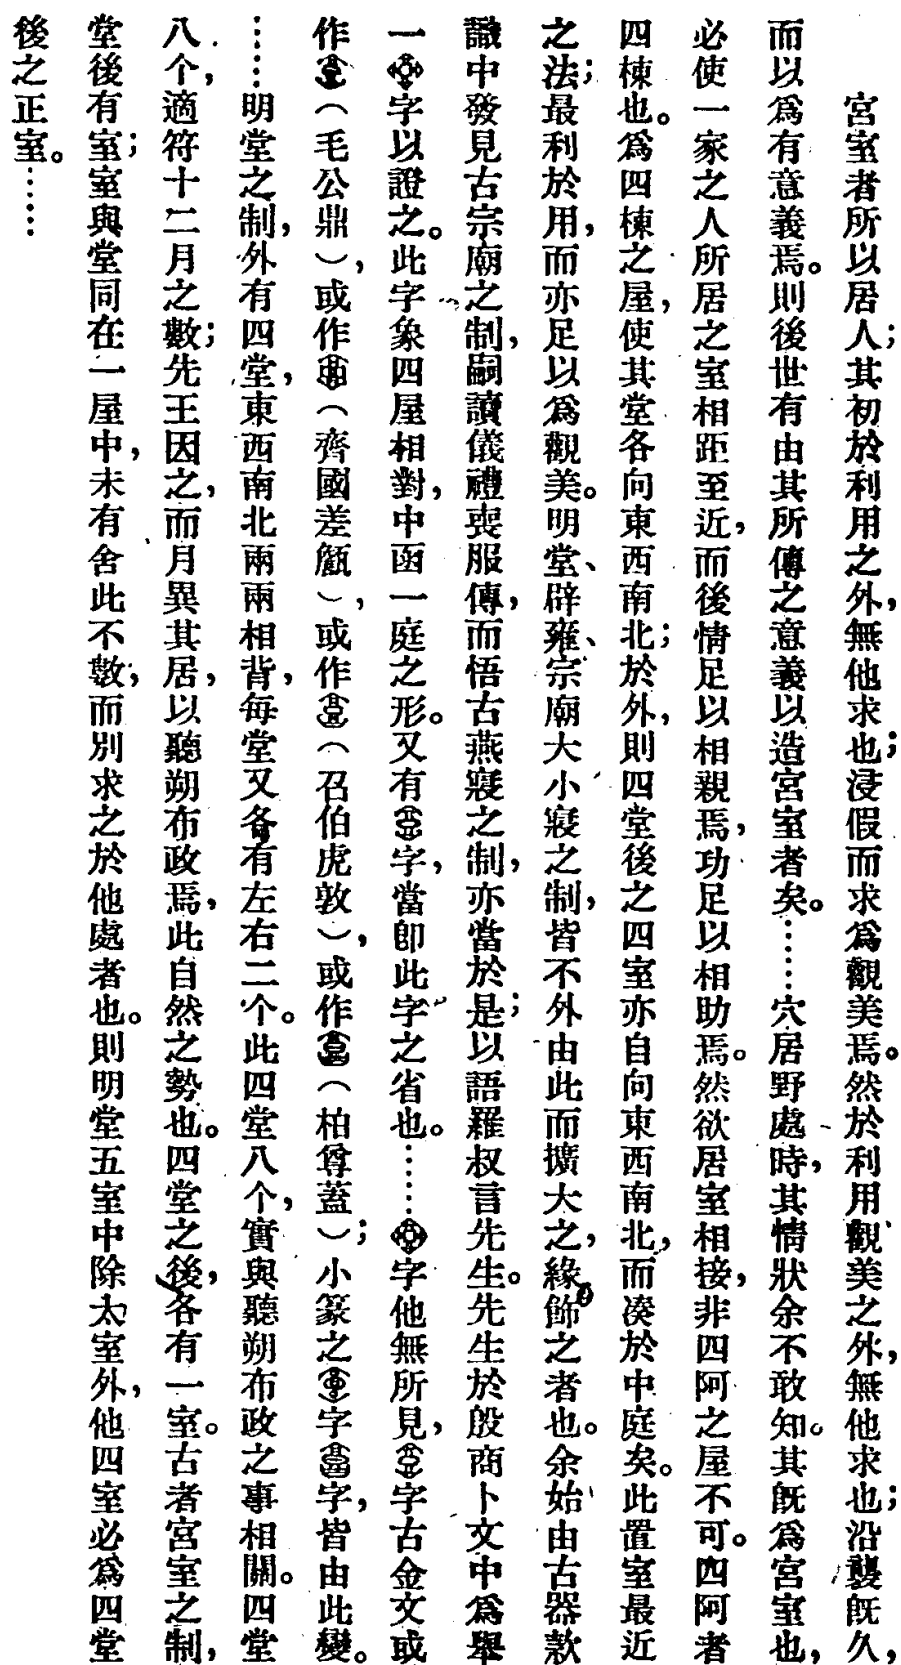 宮室者所以居人；其初於利用之外，無他求也；浸假而求爲觀美焉。然於利用觀美之外，無他求也；沿襲既久，
而以爲有意義焉。則後世有由其所傳之意義以造宮室者矣。……穴居野處時，其情狀余不敢知。其既爲宮室也，
必使一家之人所居之室相距至近，而後情足以相親焉，功足以相助焉。然欲居室相接，非四阿之屋不可。四阿者
四棟也。爲四棟之屋，使其堂各向東西南北；於外，則四堂後之四室亦自向東西南北，而湊於中庭矣。此置室最近
之法；最利於用，而亦足以爲觀美。明堂、辟雍、宗廟大小寢之制，皆不外由此而擴大之，緣飾之者也。余始由古器款
識中發見古宗廟之制，嗣讀儀禮喪服傳，而悟古燕寢之制，亦當於是；以語羅叔言先生。先生於殷商卜文中爲舉
一字以證之。此字象四屋相對，中函一庭之形。又有字，當即此字之省也。……字他無所見，字古金文或
作（毛公鼎），或作（齊國差𦉜），或作（召伯虎敦），或作（柏尊蓋）；小篆之字字，皆由此變。
……明堂之制，外有四堂，東西南北兩兩相背，每堂又各有左右二个。此四堂八个，實與聽朔布政之事相關。四堂
八个，適符十二月之數；先王因之，而月異其居，以聽朔布政焉，此自然之勢也。四堂之後，各有一室。古者宮室之制，
堂後有室；室與堂同在一屋中，未有舍此不數；而別求之於他處者也。則明堂五室中除太室外，他四室必爲四堂
後之正室。……